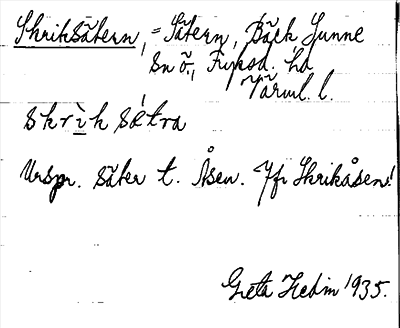 Skriksätern, = Sätern, Bäck Gunne
sn ö., Fryksd. hd
Värml. l.
skrik sätra
Urspr. säter t. Åsen. Jfr Skrikåsen!
Greta Hedin 1935.